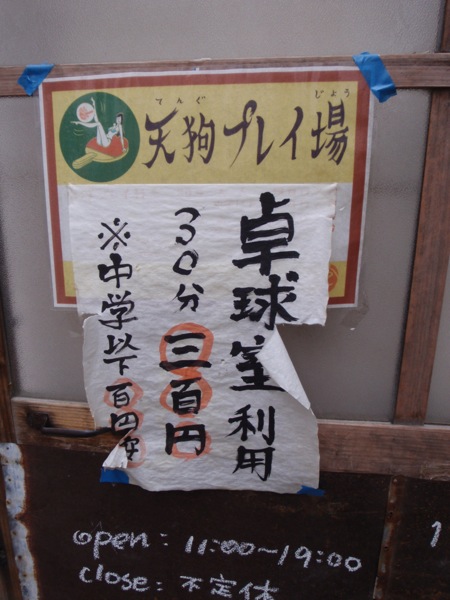 てんぐ じょう
天狗プレイ場
卓球室利用
30分三百円
※中学以下百円安
open: 11:00~19:00
close: 不定休